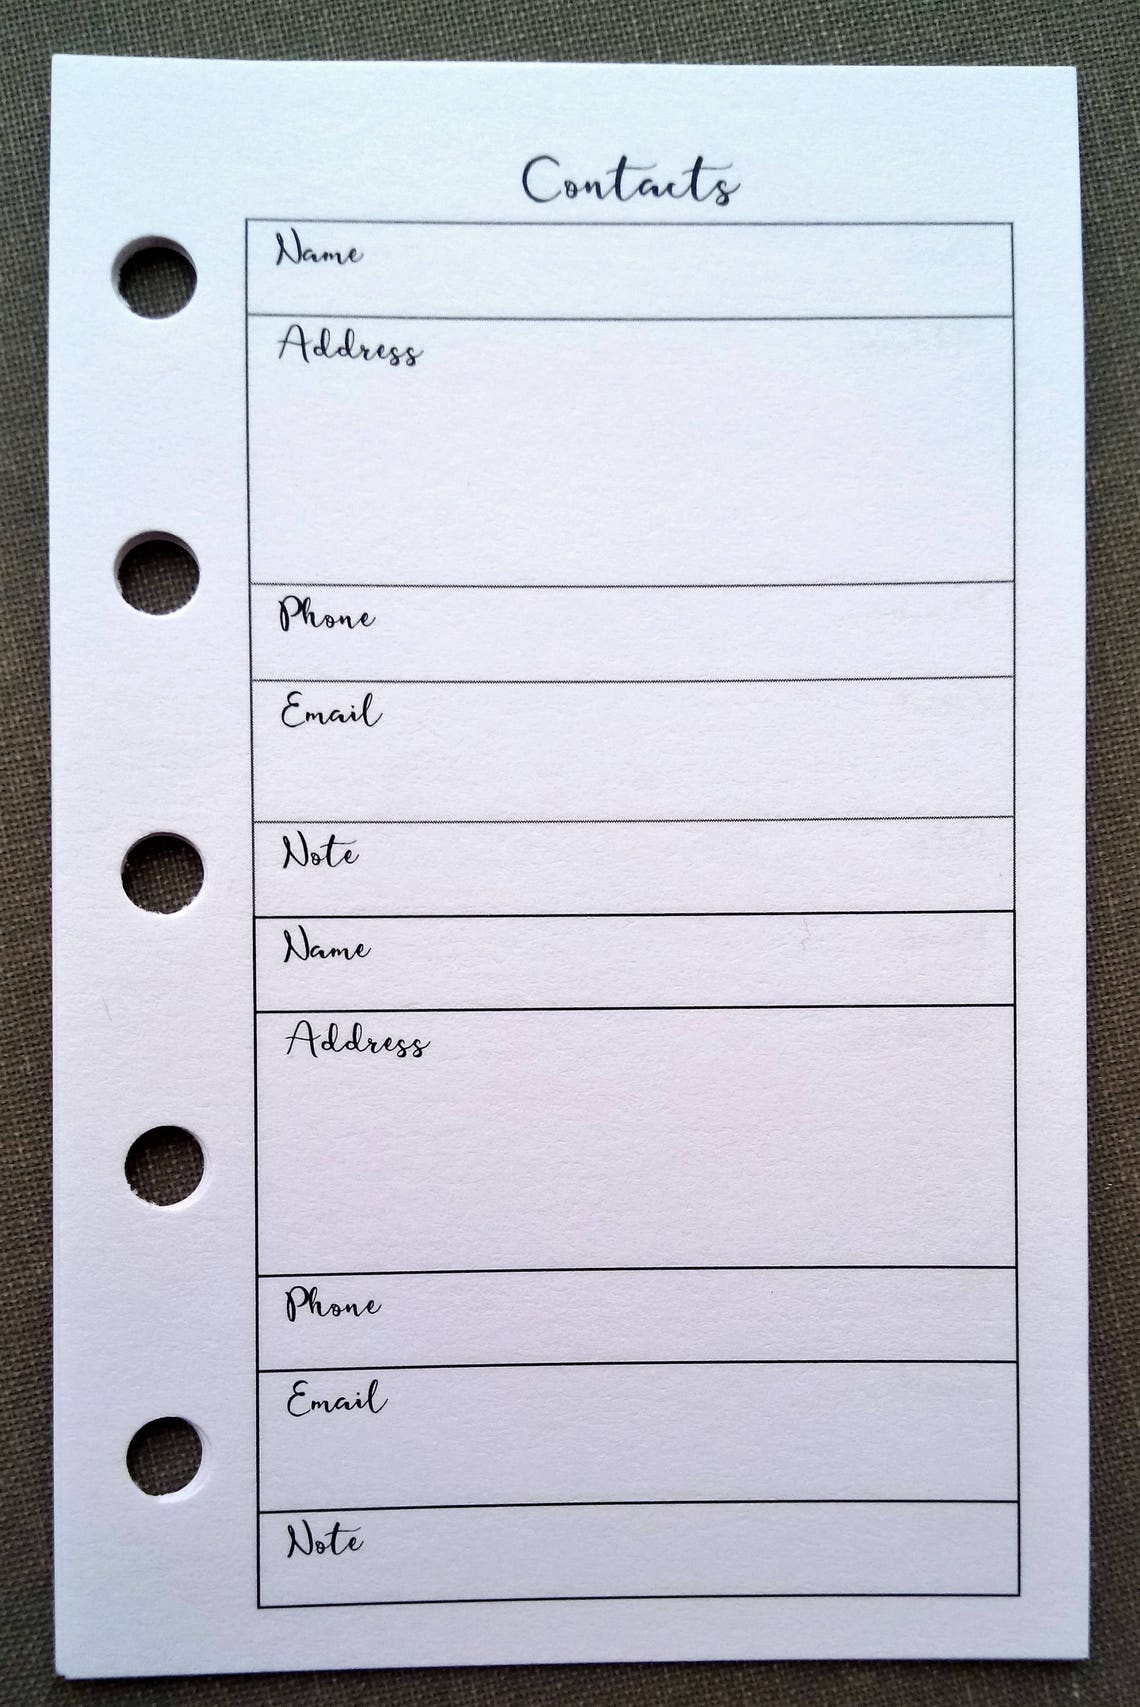 Contacts
Name
Address
Phone
Email
Note
Name
Address
Phone
Email
Note